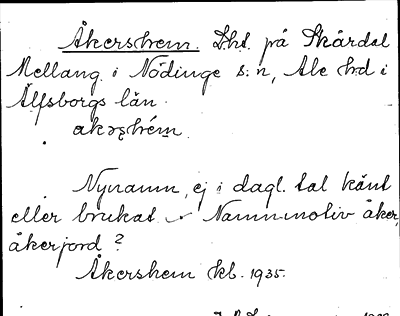 Åkershem. Lht. på Skårdal
Mellang. i Nödinge s:n, Ale hd i
Älfsborgs län.
akəʂhém
Nynamn, ej i dagl. tal känt
eller brukat. Namnmotiv åker,
åkerjord?
Åkershem kb. 1935.